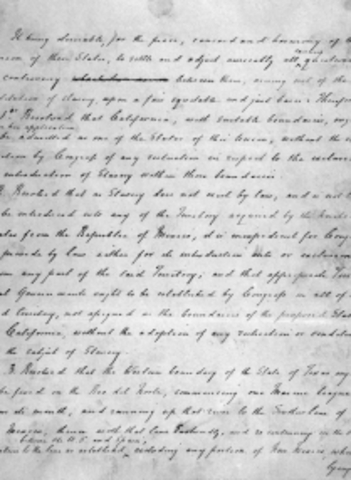 It being desirable, for the peace, concord and harmony of
of these States, to settle and adjust amicably all existing questions
controversy between them, arising out of the
institution of slavery, upon a fair equitable and just basis: Therefore
Resolved that California, with suitable boundaries, ought
upon her application
be admitted as one of the States of this Union, without the
by Congress of any restriction in respect to the exclusion
introduction of Slavery within those boundaries.
2. Resolved that as Slavery does not exist by law, and is not
be introduced into any of the Territory acquired by the United
from the Republic of Mexico, it is inexpedient for Congress
provide by law either for its introduction into or exclusion
any part of the said Territory; and that appropriate
Governments ought to be established by Congress in all of
Territory, not assigned as the boundaries of the proposed State
California, without the adoption of any restriction or condition
the subject of Slavery.
3. Resolved that the Western boundary of the State of Texas
be fixed on the Rio del Norte, commencing one Marine league
its mouth, and running up that river to the Southern line of
Mexico; thence with that line Eastwardly, and so continuing in the
between the U.S. and Spain,
to the line as established, excluding any portion of New Mexico
lying